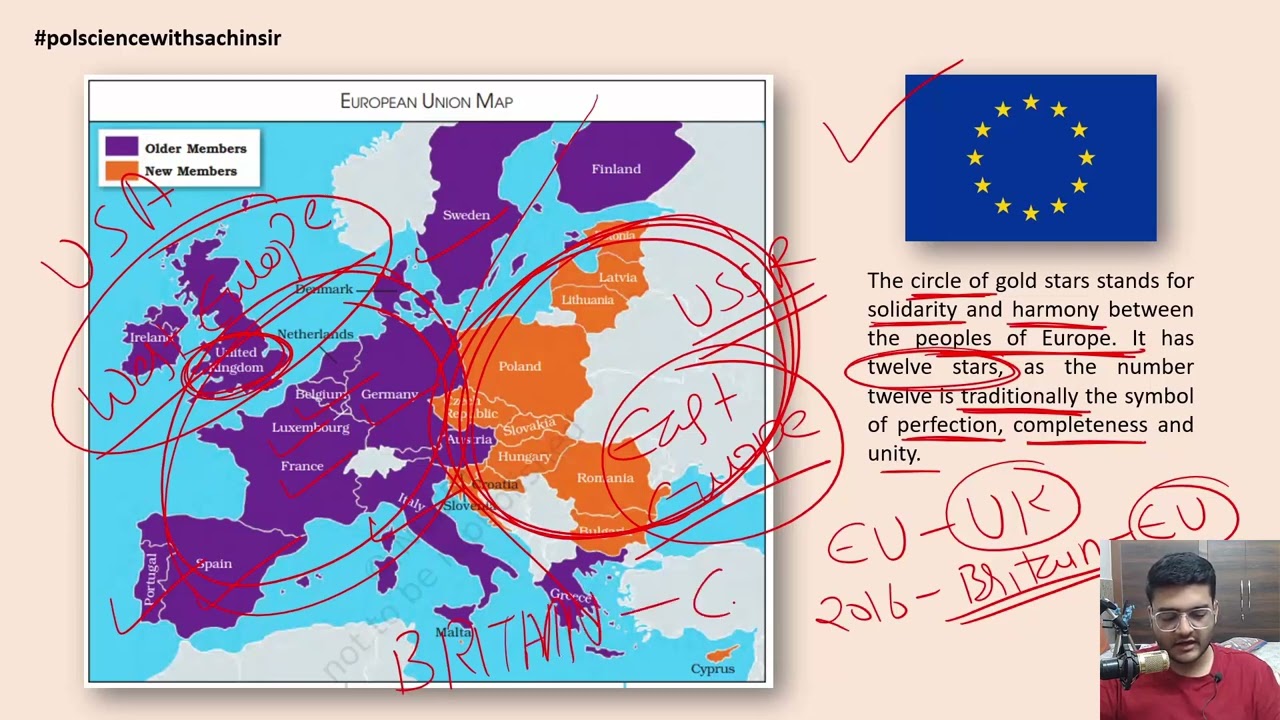 #polsciencewithsachinsir
EUROPEAN UNION MAP
Older Members
New Members
Finland
Sweden
USA
West Europe
Estonia
Latvia
Lithuania
USSR
Denmark
Ireland
United
Kingdom
Netherlands
Poland
Belgium
Germany
Luxembourg
Czech
Republic
Slovakia
Austria
Hungary
East
Europe
France
Romania
Croatia
Slovenia
Italy
Bulgaria
Portugal
Spain
Greece
Malta
Cyprus
BRITAIN — C.
not to be republished
The circle of gold stars stands for
solidarity and harmony between
the peoples of Europe. It has
twelve stars, as the number
twelve is traditionally the symbol
of perfection, completeness and
unity.
EU – UK
2016 – Britain – EU